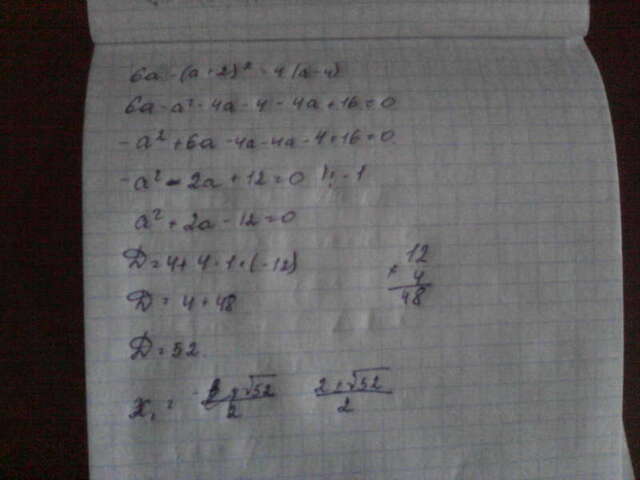 6a - (a + 2)² - 4(a - 4)
6a - a² - 4a - 4 - 4a + 16 = 0
-a² + 6a - 4a - 4a - 4 + 16 = 0
-a² - 2a + 12 = 0 |: -1
a² + 2a - 12 = 0
D = 4 + 4 · 1 · (-12)
D = 4 + 48
D = 52
12
× 4
48
x₁ = √52 / 2 2 + √52 / 2